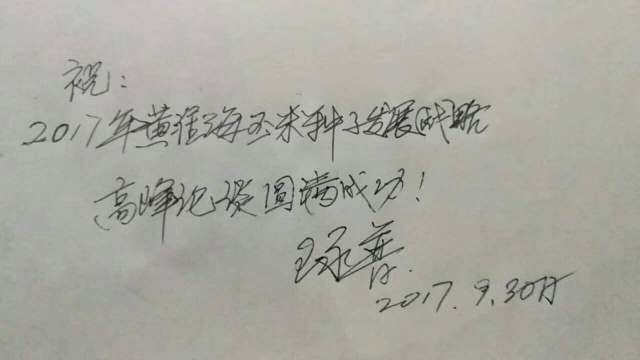 祝:
2017年黄淮海玉米种子发展战略
高峰论谈圆满成功!
王永普
2017.9.30日